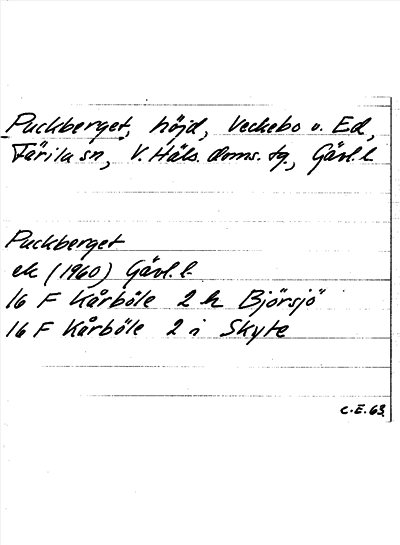 Puckberget, höjd, Veckebo o. Ed,
Färila sn, V. Häls. doms. tg., Gävl. l
Puckberget
ek (1960) Gävl. l.
16 F Kårböle 2 h Björsjö
16 F Kårböle 2 i Skyte
C.E. 63.